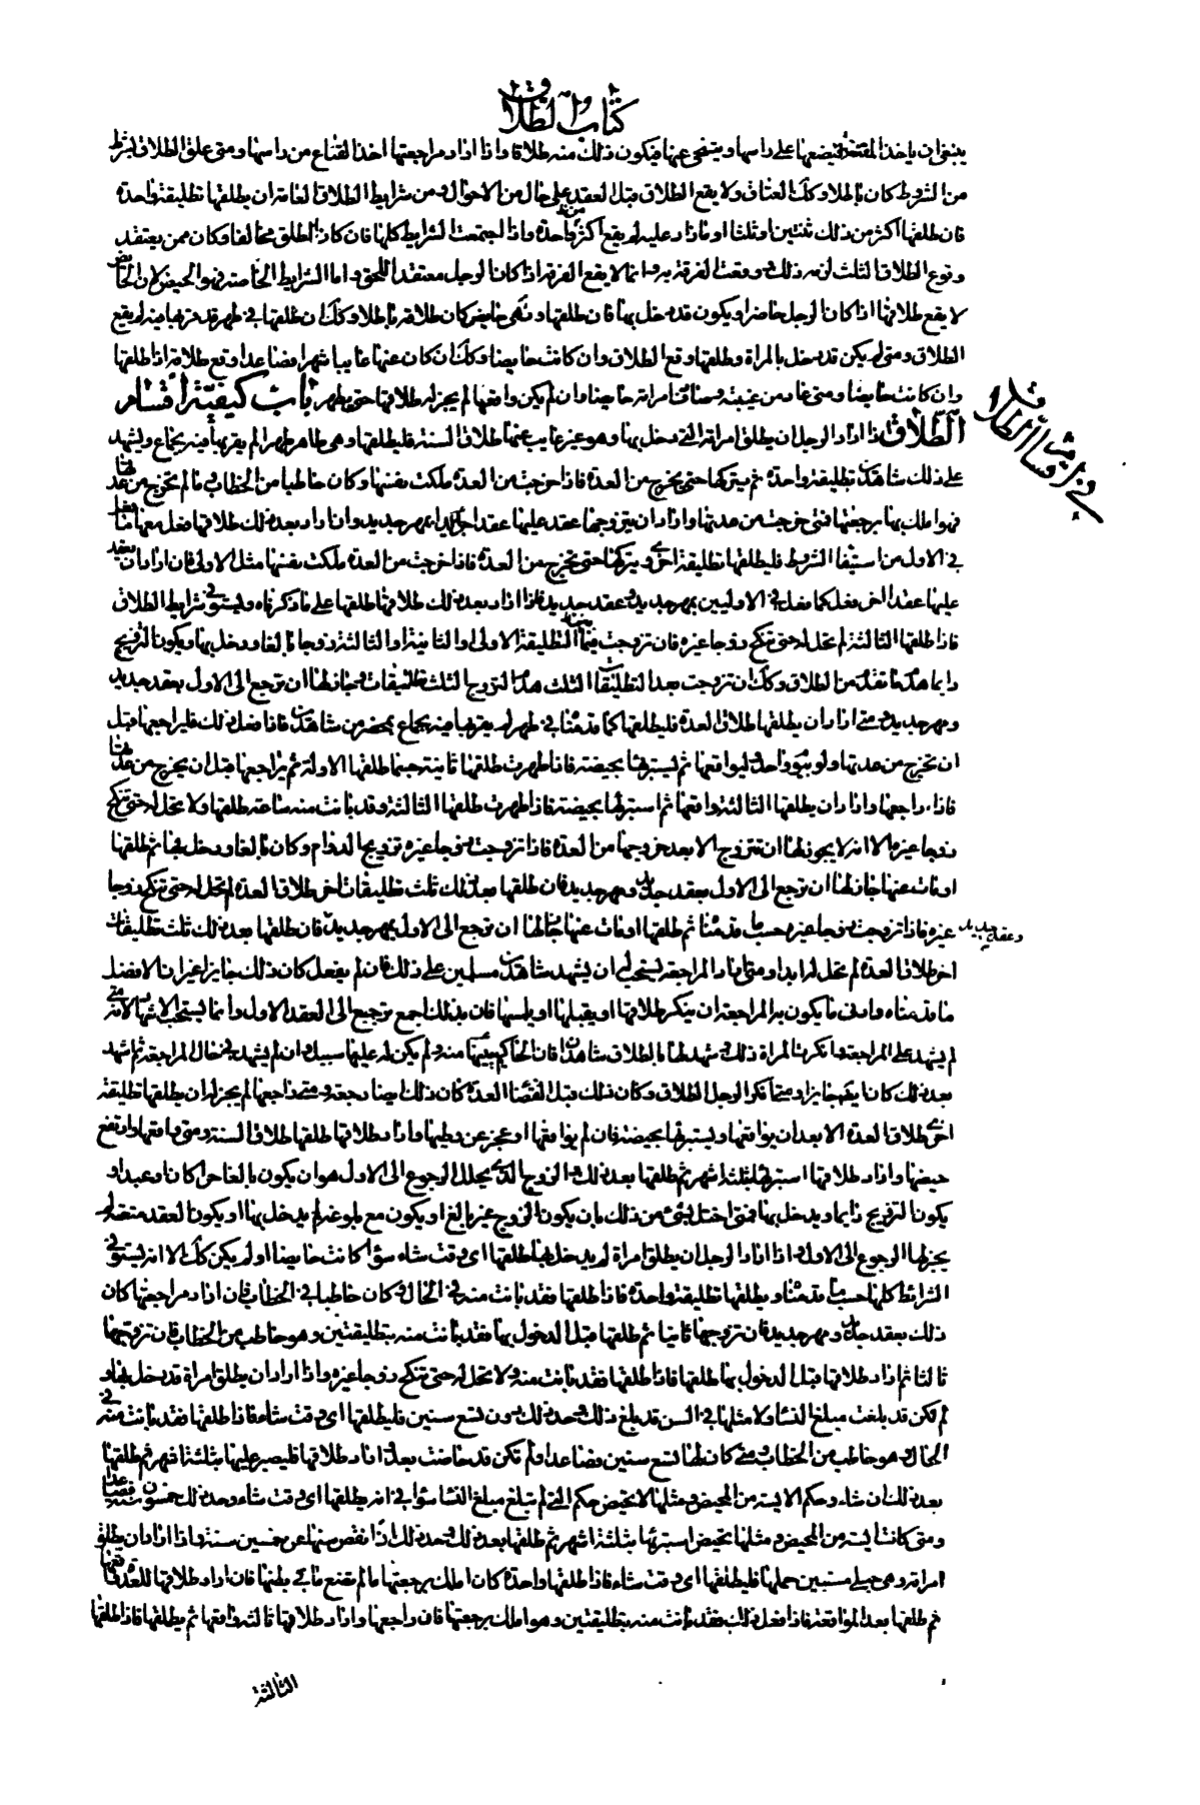 كتاب الطلاق
ينبغي ان ياخذ المقنعة فيضعها على راسها ويتنحى عنها فيكون ذلك منه طلاقا واذا اراد مراجعتها اخذ القناع من راسها ومتى علق الطلاق بشرط
من الشروط كان باطلا وكك العتاق ولا يقع الطلاق قبل العقد على حال من الاحوال ومن شرايط الطلاق العامة ان يطلقها تطليقة واحدة
فان طلقها اكثر من ذلك ثنتين او ثلثا او ما زاد عليه لم يقع اكثر من واحدة واذا اجتمعت الشرايط كلها فان كان المطلق مخالفا وكان ممن يعتقد
وقوع الطلاق الثلث لزمه ذلك ووقعت الفرقة به وانما لا يقع الفرقة اذا كان الرجل معتقدا للحق واما الشرايط الخاصة فهو الحيض لان الحائض
لا يقع طلاقها اذا كان الرجل حاضرا ويكون قد دخل بها فان طلقها وهي حايض كان طلاقه باطلا وكك ان طلقها في طهر قد قربها فيه لم يقع
الطلاق ومتى لم يكن قد دخل بالمراة وطلقها وقع الطلاق وان كانت حايضا وكك ان كان عنها غايبا شهرا فصاعدا وقع طلاقه اذا طلقها
وان كانت حايضا ومتى عاد من غيبته وصادف امراته حايضا وان لم يكن واقعها لم يجز له طلاقها حتى يطهر باب كيفية اقسام
الطلاق اذا اراد الرجل ان يطلق امراته التي دخل بها وهو غير غايب عنها طلاق السنة فليطلقها وهي طاهر طهرا لم يقربها فيه بجماع ويشهد
في اقسام الطلاق
على ذلك شاهدين تطليقة واحدة ثم يتركها حتى يخرج من العدة فاذا خرجت من العدة ملكت نفسها وكان خاطبا من الخطاب وما لم تخرج من عدتها
فهو املك بها برجعتها فمتى خرجت من عدتها واراد ان يتزوجها عقد عليها عقدا جديدا بمهر جديد وان اراد بعد ذلك طلاقها فعل معها ما فعل
في الاول من استيفاء الشروط فليطلقها تطليقة اخرى ويتركها حتى تخرج من العدة فاذا خرجت من العدة ملكت نفسها مثل الاولى فان اراد ان يعقد
عليها عقدا اخر فعل كما فعل في الاوليين بمهر جديد وعقد جديد فاذا اراد بعد ذلك طلاقها طلقها على ما ذكرناه ويستوفي شرايط الطلاق
فاذا طلقها الثالثة لم تحل له حتى تنكح زوجا غيره فان تزوجت فيما بين التطليقة الاولى او الثانية او الثالثة زوجا بالغا ودخل بها ويكون التزويج
دايما هدم ما تقدم من الطلاق وكك ان تزوجت بعد التطليقات الثلث هدم الزوج الثلث تطليقات وجاز لها ان ترجع الى الاول بعقد جديد
ومهر جديد ومتى اراد ان يطلقها طلاق العدة فليطلقها كما قدمناه في طهر لم يقربها فيه بجماع بمحضر من شاهدين فاذا فعل ذلك فليراجعها قبل
ان تخرج من عدتها ولو بيوم واحد ثم ليواقعها ثم ليستبرئها بحيضة فاذا طهرت طلقها ثانية حسبما طلقها الاولة ثم يراجعها قبل ان يخرج من عدتها
فاذا راجعها واراد ان يطلقها الثالثة واقعها ثم استبرئها بحيضة فاذا طهرت طلقها الثالثة وقد بانت منه ساعة طلقها ولا تحل له حتى تنكح
زوجا غيره الا انه لا يجوز لها ان تتزوج الا بعد خروجها من العدة فاذا تزوجت زوجا غيره تزويج الدوام وكان بالغا ودخل بها ثم طلقها
او مات عنها جاز لها ان ترجع الى الاول بعقد جديد ومهر جديد فان طلقها بعد ذلك ثلث تطليقات اخر طلاق العدة لم تحل له حتى تنكح زوجا
غيره فاذا تزوجت زوجا غيره حسب ما قدمناه ثم طلقها او مات عنها جاز لها ان ترجع الى الاول بمهر جديد فان طلقها بعد ذلك ثلث تطليقات
وعقد جديد
اخر طلاق العدة لم تحل له ابدا ومتى اراد المراجعة يستحب له ان يشهد شاهدين مسلمين على ذلك فان لم يفعل كان ذلك جايزا غير ان الافضل
ما قدمناه وادنى ما يكون به المراجعة ان ينكر طلاقها او يقبلها او يلمسها فان بذلك اجمع ترجع الى العقد الاول وانما يستحب الاشهاد لانه متى
لم يشهد على المراجعة وانكرت المراة ذلك وشهد لها بالطلاق شاهدان فان الحاكم يبينها منه ولم يكن له عليها سبيل وان لم يشهد في حال المراجعة ثم اشهد
بعد ذلك كان ايضا جايزا ومتى انكر الرجل الطلاق وكان ذلك قبل انقضاء العدة كان ذلك ايضا رجعة ومتى راجعها لم يجز له ان يطلقها تطليقة
اخرى طلاق العدة الا بعد ان يواقعها ويستبرئها بحيضة فان لم يواقعها او عجز عن وطيها واراد طلاقها طلقها طلاق السنة ومتى واقعها وارتفع
حيضها واراد طلاقها استبرئها بثلثة اشهر ثم طلقها بعد ذلك والزوج الذي يحلل الرجوع الى الاول هو ان يكون بالغا حرا كان او عبدا و
يكون التزويج دايما ويدخل بها فمتى اختل شيء من ذلك بان يكون الزوج غير بالغ او يكون مع بلوغه لم يدخل بها او يكون العقد متعة لم
يجز لها الرجوع الى الاول واذا اراد الرجل ان يطلق امراة لم يدخل بها طلقها اي وقت شاء سواء كانت حايضا او لم يكن كك الا انه يستوفي
الشرايط كلها حسب ما قدمناه ويطلقها تطليقة واحدة فاذا طلقها فقد بانت منه في الحال وكان خاطبا في الخطاب فان اراد مراجعتها كان
ذلك بعقد جديد ومهر جديد فان تزوجها ثانيا ثم طلقها قبل الدخول بها فقد بانت منه بتطليقتين وهو خاطب من الخطاب فان تزوجها
ثالثا ثم اراد طلاقها قبل الدخول بها طلقها فاذا طلقها فقد بانت منه ولا تحل له حتى تنكح زوجا غيره واذا اراد ان يطلق امراة قد دخل بها و
لم تكن قد بلغت مبلغ النساء ولا مثلها في السن قد بلغ ذلك وحد ذلك دون تسع سنين فليطلقها اي وقت شاء فاذا طلقها فقد بانت منه في
الحال وهو خاطب من الخطاب ومتى كان لها تسع سنين فصاعدا ولم تكن قد حاضت بعد واراد طلاقها فليصبر عليها ثلثة اشهر ثم طلقها
بعد ذلك ان شاء وحكم الآيسة من المحيض ومثلها لا تحيض حكم التي لم تبلغ مبلغ النساء سواء في انه يطلقها اي وقت شاء وحد ذلك خمسون سنة فصاعدا
ومتى كانت آيسة من المحيض ومثلها تحيض استبرئها بثلثة اشهر ثم طلقها بعد ذلك وحد ذلك اذا نقص سنها عن خمسين سنة واذا اراد ان يطلق
امراته وهي حبلى مستبين حملها فليطلقها اي وقت شاء فاذا طلقها واحدة كان املك برجعتها ما لم تضع ما في بطنها فان اراد طلاقها للعدة واقعها
ثم طلقها بعد المواقعة فاذا فعل ذلك فقد بانت منه بتطليقتين وهو املك برجعتها فان راجعها واراد طلاقها ثالثة واقعها ثم يطلقها فاذا طلقها
الثالثة